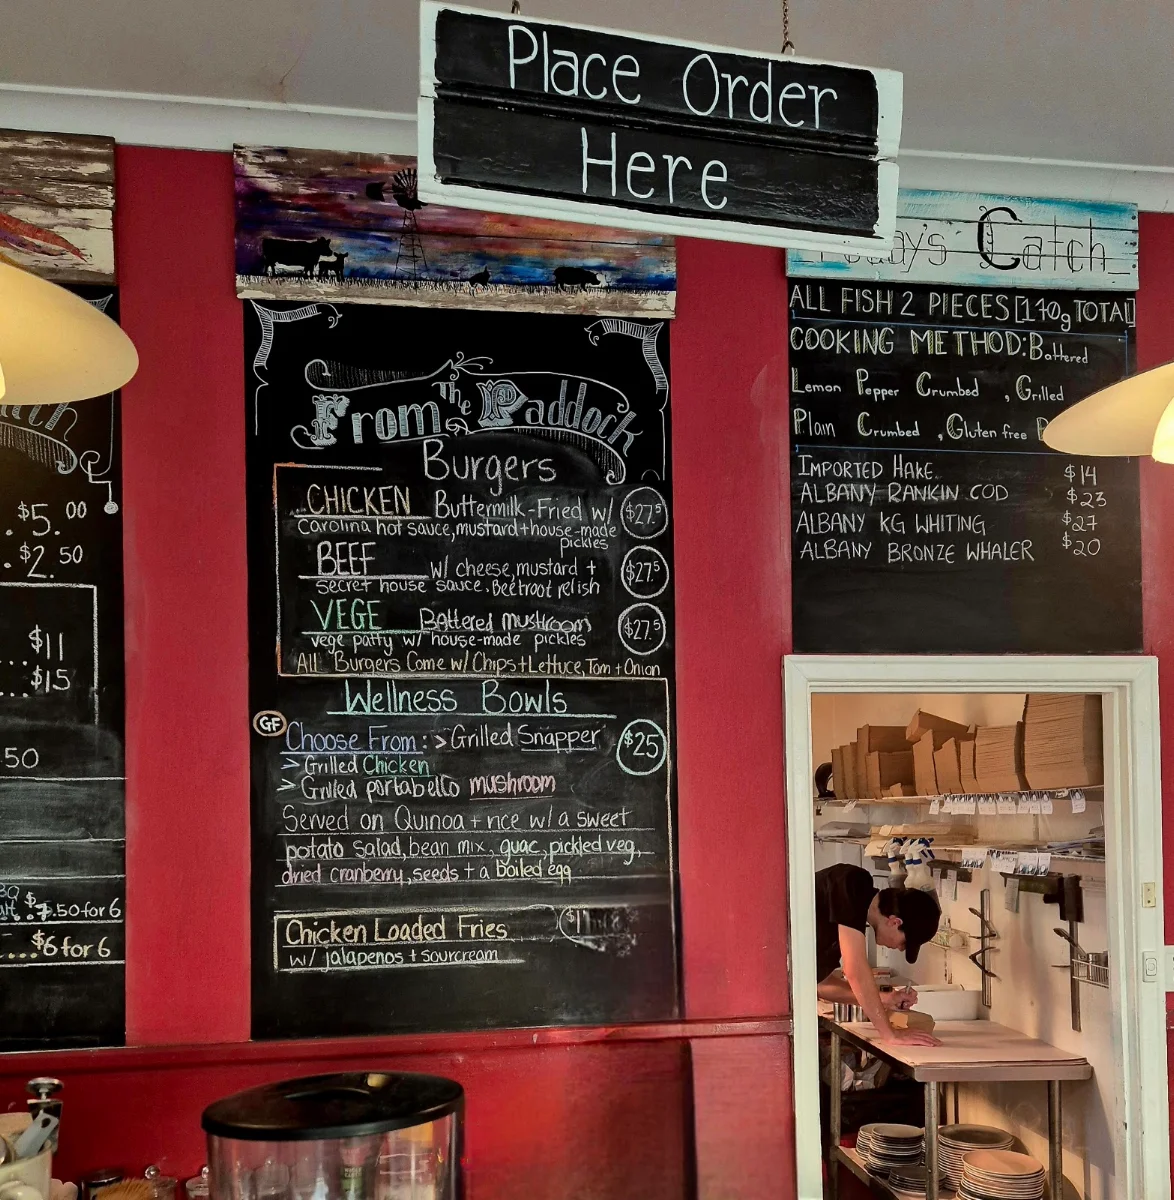 Place Order
Here
Today's Catch
ALL FISH 2 PIECES [170g TOTAL]
COOKING METHOD: Battered
Lemon Pepper Crumbed , Grilled
Plain Crumbed , Gluten free
IMPORTED HAKE $14
ALBANY RANKIN COD $23
ALBANY KG WHITING $27
ALBANY BRONZE WHALER $20
From The Paddock
Burgers
CHICKEN Buttermilk-Fried w/ $27.5
Carolina hot sauce, mustard + house-made
pickles
BEEF w/ cheese, mustard + $27.5
secret house sauce, Beetroot relish
VEGE Battered mushroom $27.5
vege patty w/ house-made pickles
All Burgers Come w/ Chips + Lettuce, Tom + Onion
Wellness Bowls
GF
Choose From: > Grilled Snapper $25
> Grilled Chicken
> Grilled portabello mushroom
Served on Quinoa + rice w/ a sweet
potato salad, bean mix, guac, pickled veg,
dried cranberry, seeds + a boiled egg
Chicken Loaded Fries $11
w/ jalapenos + sourcream
$5.00
$2.50
$11
$15
50
.50 for 6
$6 for 6